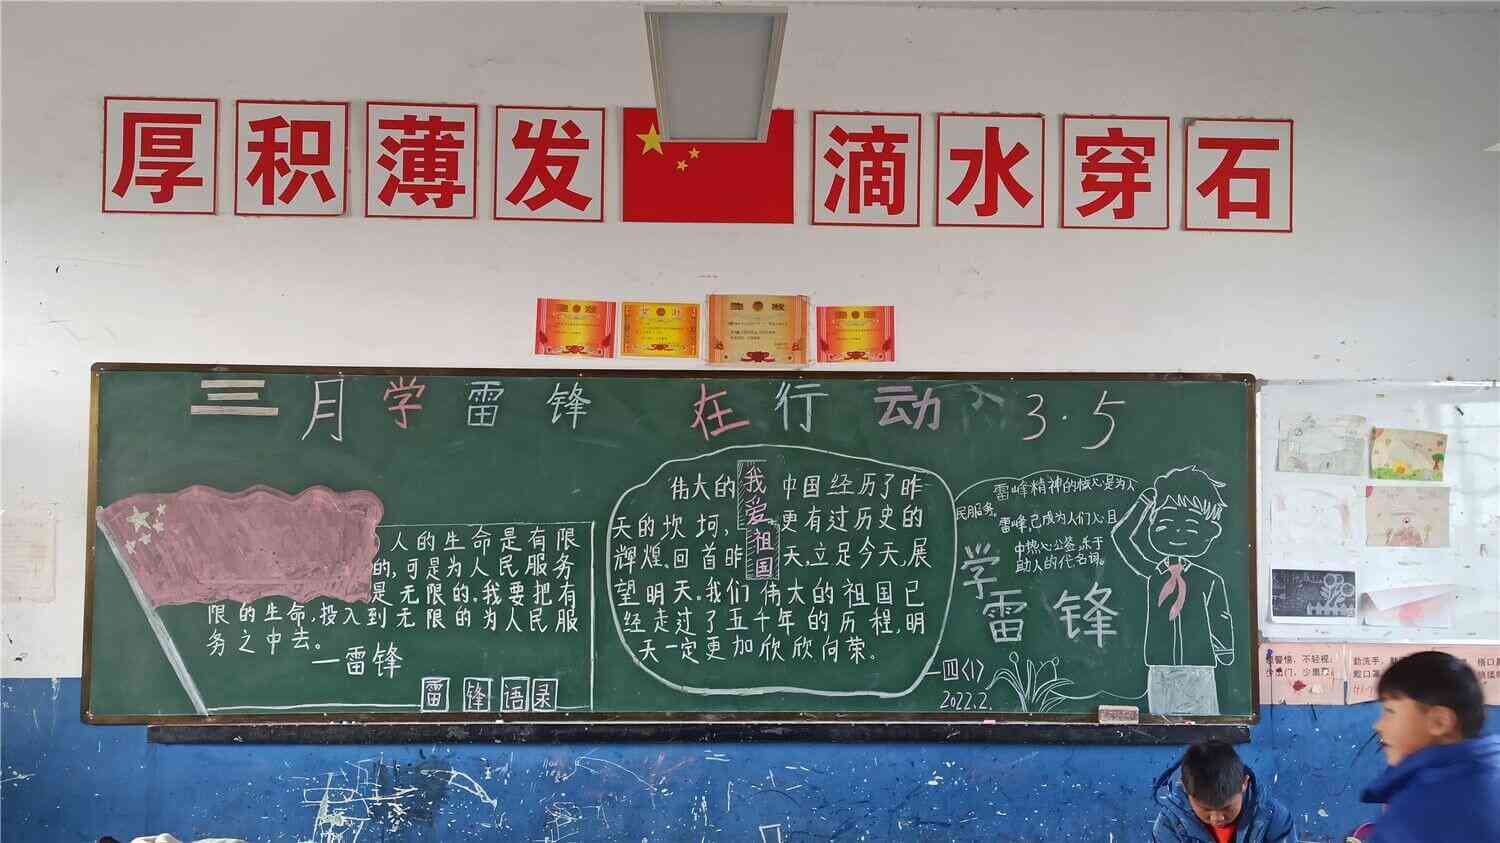 厚积薄发 滴水穿石
三月学雷锋 在行动 3·5
人的生命是有限
的,可是为人民服务
是无限的.我要把有
限的生命,投入到无限的为人民服
务之中去。
—雷锋
雷锋语录
伟大的 中国经历了昨
天的坎坷, 更有过历史的
辉煌.回首昨 天,立足今天,展
望明天。我们 伟大的祖国已
经走过了五千年的历程,明
天一定更加欣欣向荣。
我爱祖国
雷峰精神的核心是为人
民服务。
雷峰,已成为人们心目
中热心公益,乐于
助人的代名词。
学
雷锋
四〈1〉
2022.2.